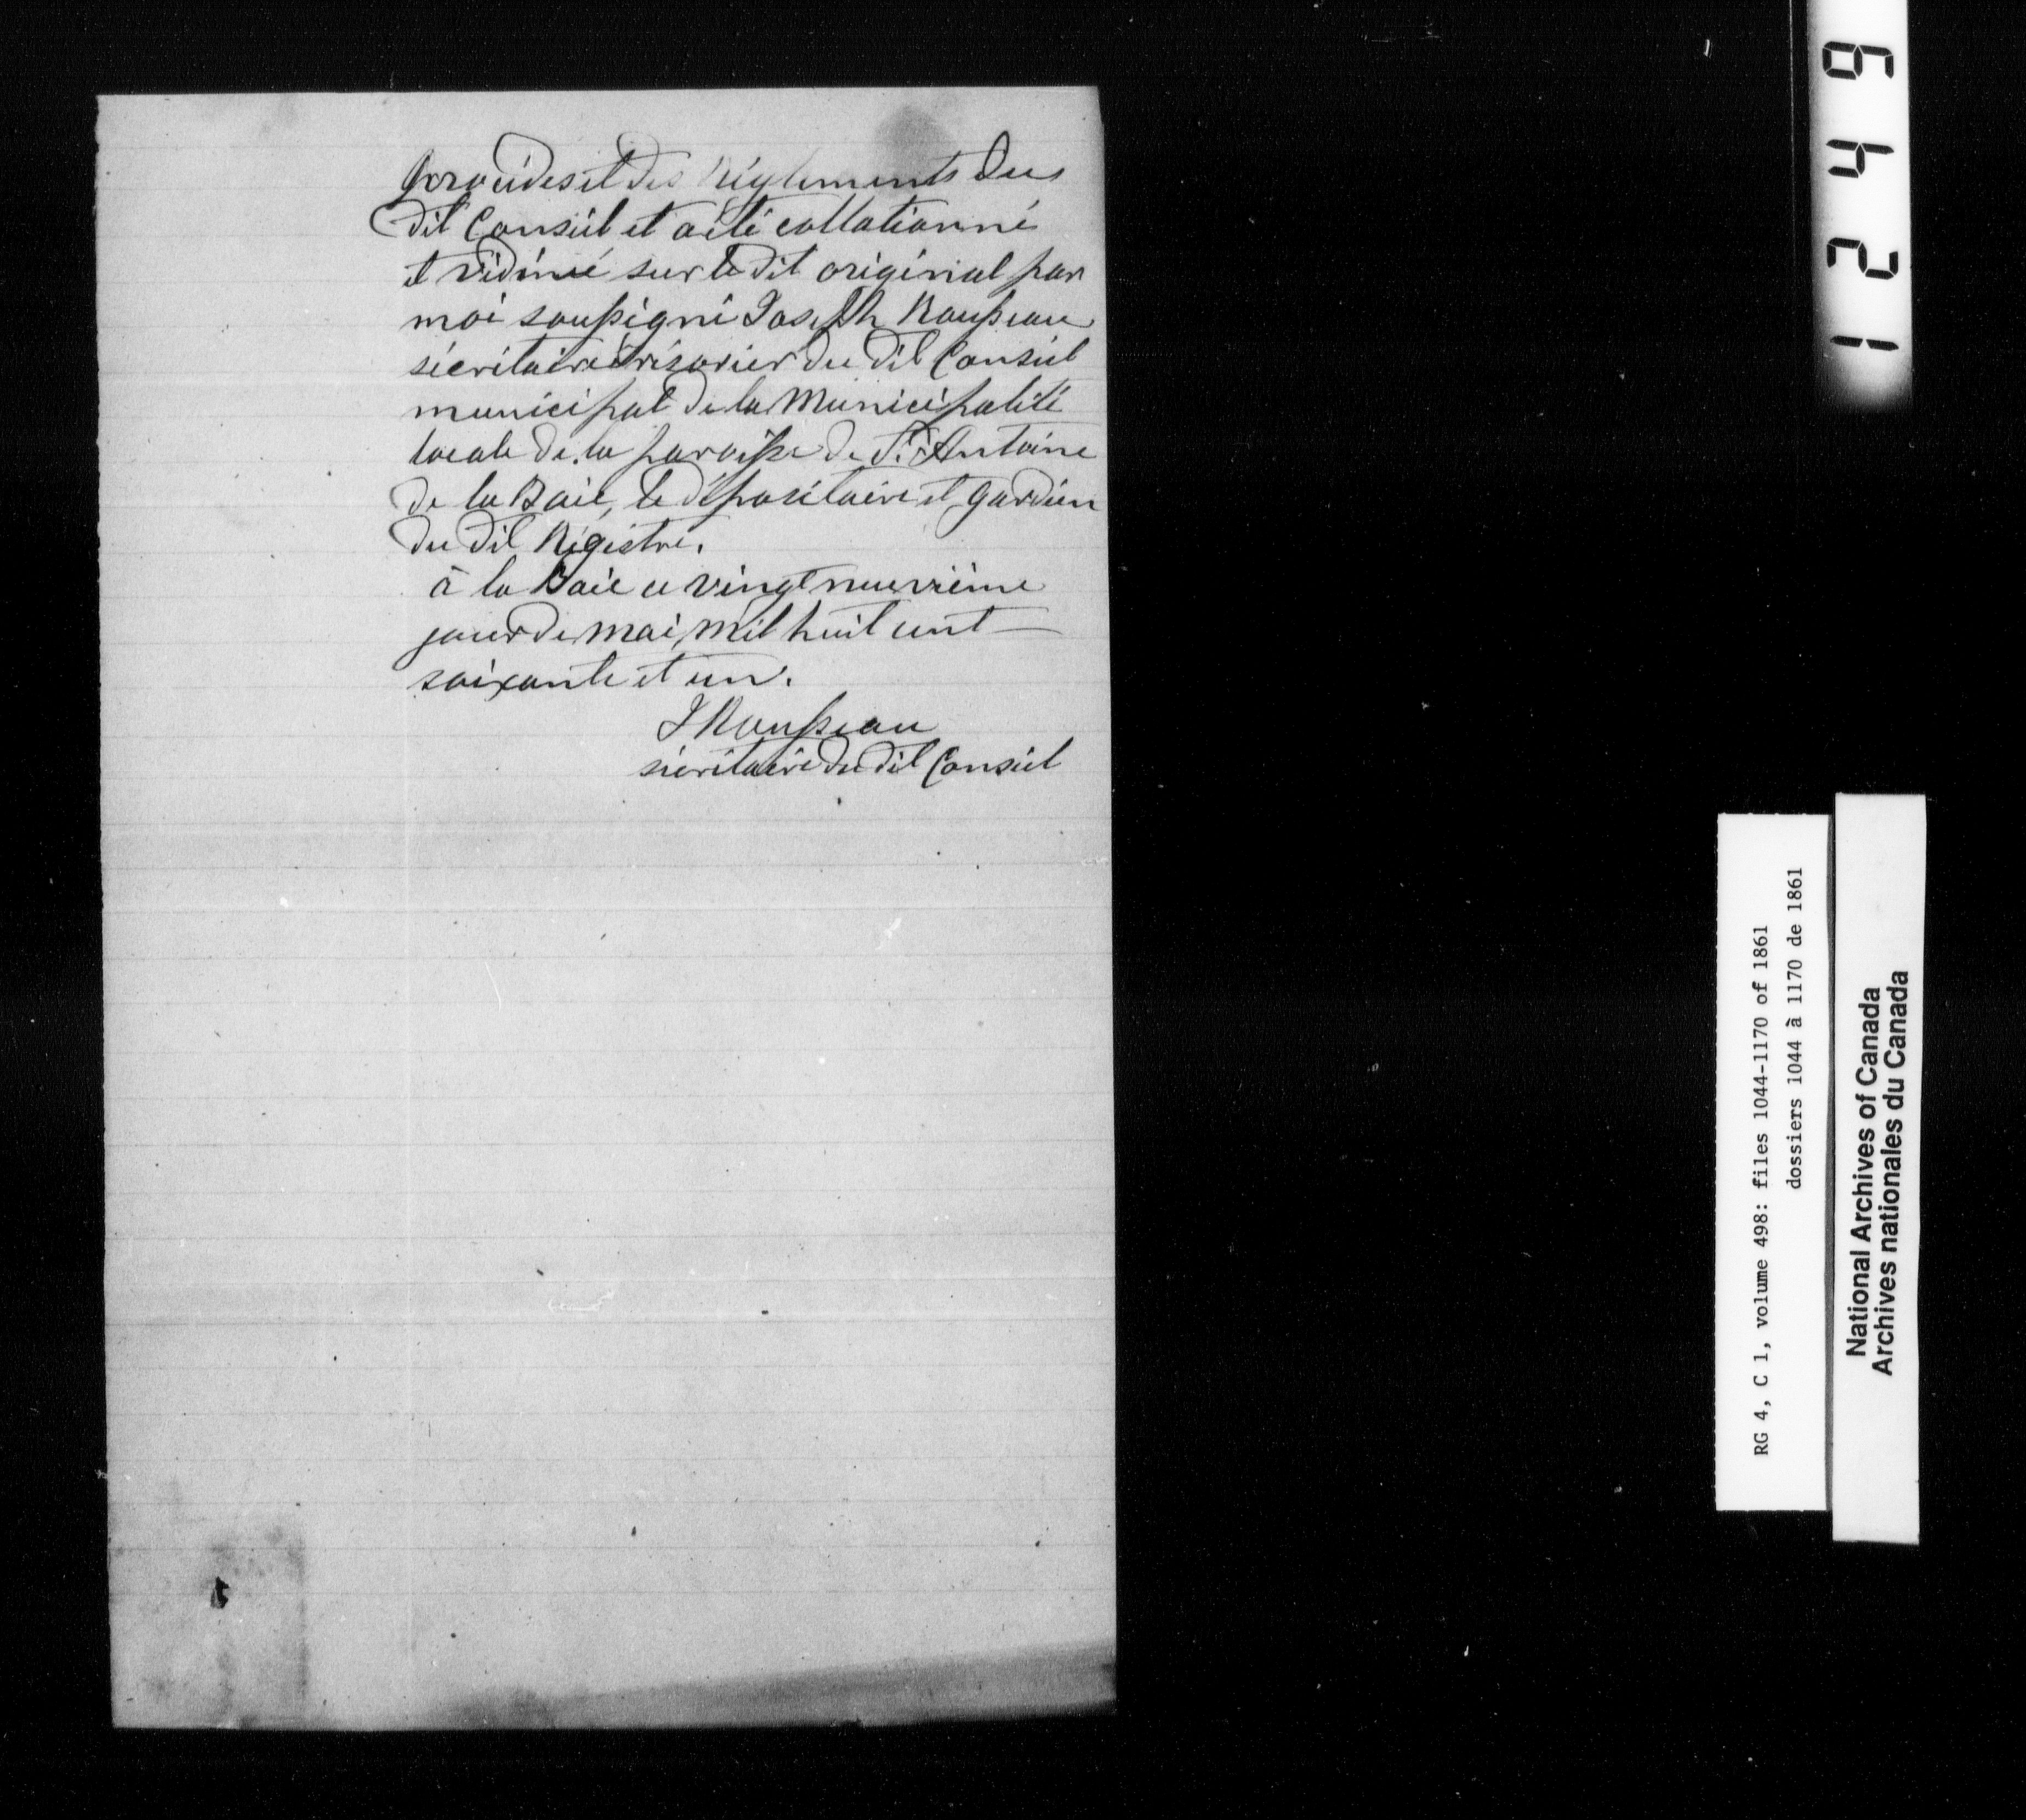 procédés et des Règlements du
dit Conseil et a été collationné
et vidimé sur le dit original par
moi soussigné Joseph Rousseau
sécrétaire trésorier du dit Conseil
municipal de la Municipalité
locale de la paroisse de St Antoine
de la Baie, le dépositaire et gardien
du dit Régistre.
à la Baie ce vingt neuvième
jour de mai, mil huit cent —
soixante et un.
J Rousseau
sécrétaire du dit Conseil
1 2 4 4 9
RG 4, C 1, volume 498: files 1044-1170 of 1861
dossiers 1044 à 1170 de 1861
National Archives of Canada
Archives nationales du Canada